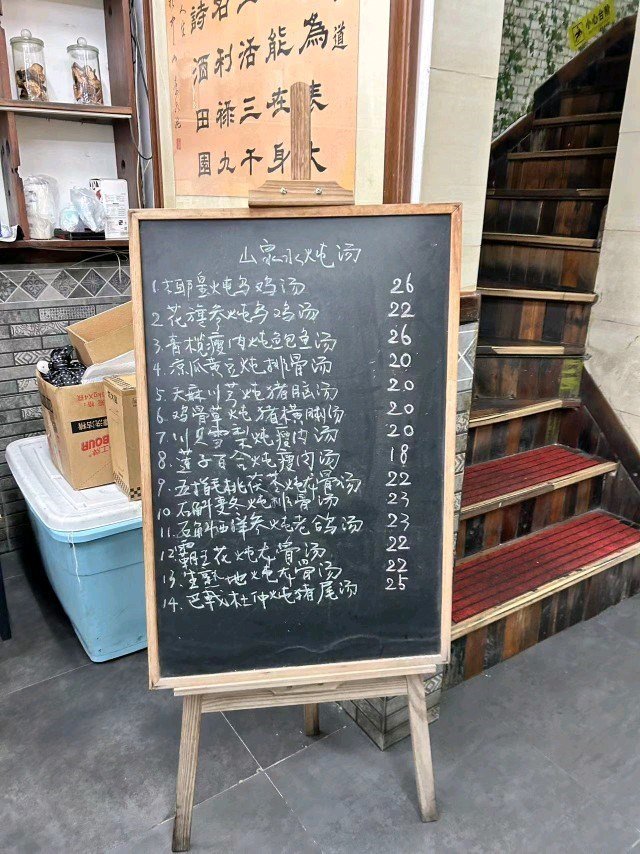 道
為 能 活 利 酒
詩
表 在 三 禄 田
大 身 千 九 園
小心台阶
山泉水炖汤
1. 椰皇炖乌鸡汤 26
2 花旗参炖乌鸡汤 22
3. 青榄瘦肉炖鲍鱼汤 26
4. 凉瓜黄豆炖排骨汤 20
5 天麻川芎炖猪脑汤 20
6. 鸡骨草炖猪横脷汤 20
7 川贝雪梨炖瘦肉汤 20
8. 莲子百合炖瘦肉汤 18
9 五指毛桃茯苓炖龙骨汤 22
10 石斛麦冬炖排骨汤 23
11. 石斛西洋参炖老鸽汤 23
12 霸王花炖龙骨汤 22
13. 生熟地炖龙骨汤 22
14. 巴戟杜仲炖猪尾汤 25